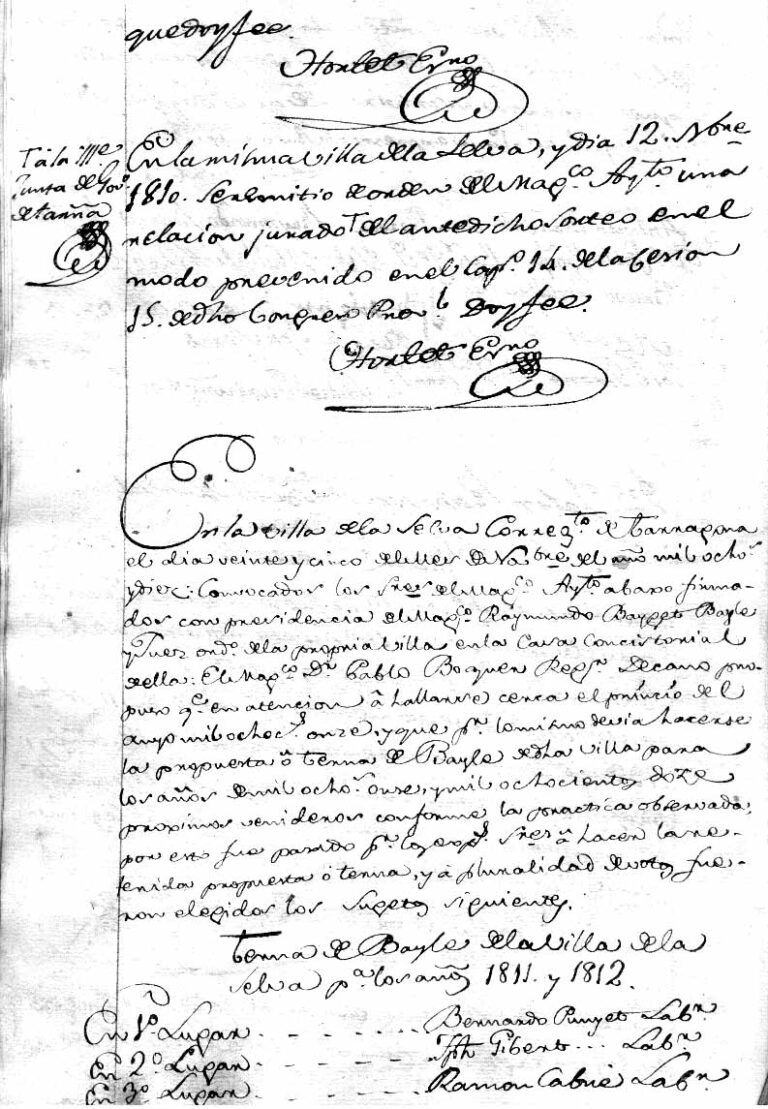 que doy fee.
Hortet Esno
Tà la Ille
Junta de Gov.º
de Cataña
En la misma Villa de la Selva, y dia 12. Nbre
1810. se remitio de orden del Magco. Ayto. una
relacion jurada del antedicho sorteo en el
modo prevenido en el Capo. 14. de la Cesion
15. de dho Congreso Prov.l Doy fee.
Hortet Esno
En la Villa de la Selva Corregto. de Tarragona
el dia veinte y cinco del Mes de Nobre del año mil ochos.
y diez: Convocados los Sres. del Magco. Ayto. abaxo firma-
dos con presidencia del Magco. Raymundo Bayget Bayle
y Juez ordo. de la propria Villa en la Casa Concistorial
de ella: El Magco. Dr. Pablo Boquer Regr. Decano pro-
puso qe. en atencion â hallarse cerca el princio del
anyo mil ochocs. onze, y que pr. lo mismo devia hacerse
la propuesta ô terna de Bayle de dha Villa para
los años de mil ochos. onse, y mil ochocientos doze
proximos venideros conforme la practica observada;
por esto fue pasado pr. los exps. Sres. â hacer la re-
ferida propuesta ô terna, y â pluralidad de votos fue-
ron elegidos los Sugetos siguientes.
Terna de Bayle de la Villa de la
Selva pa. los años 1811. y 1812.
En 1º Lugar - - - - Bernardo Punyet Labr.
En 2º Lugar - - - - Jph Gibert ... Labr.
En 3º Lugar - - - - Ramon Cabré Labr.